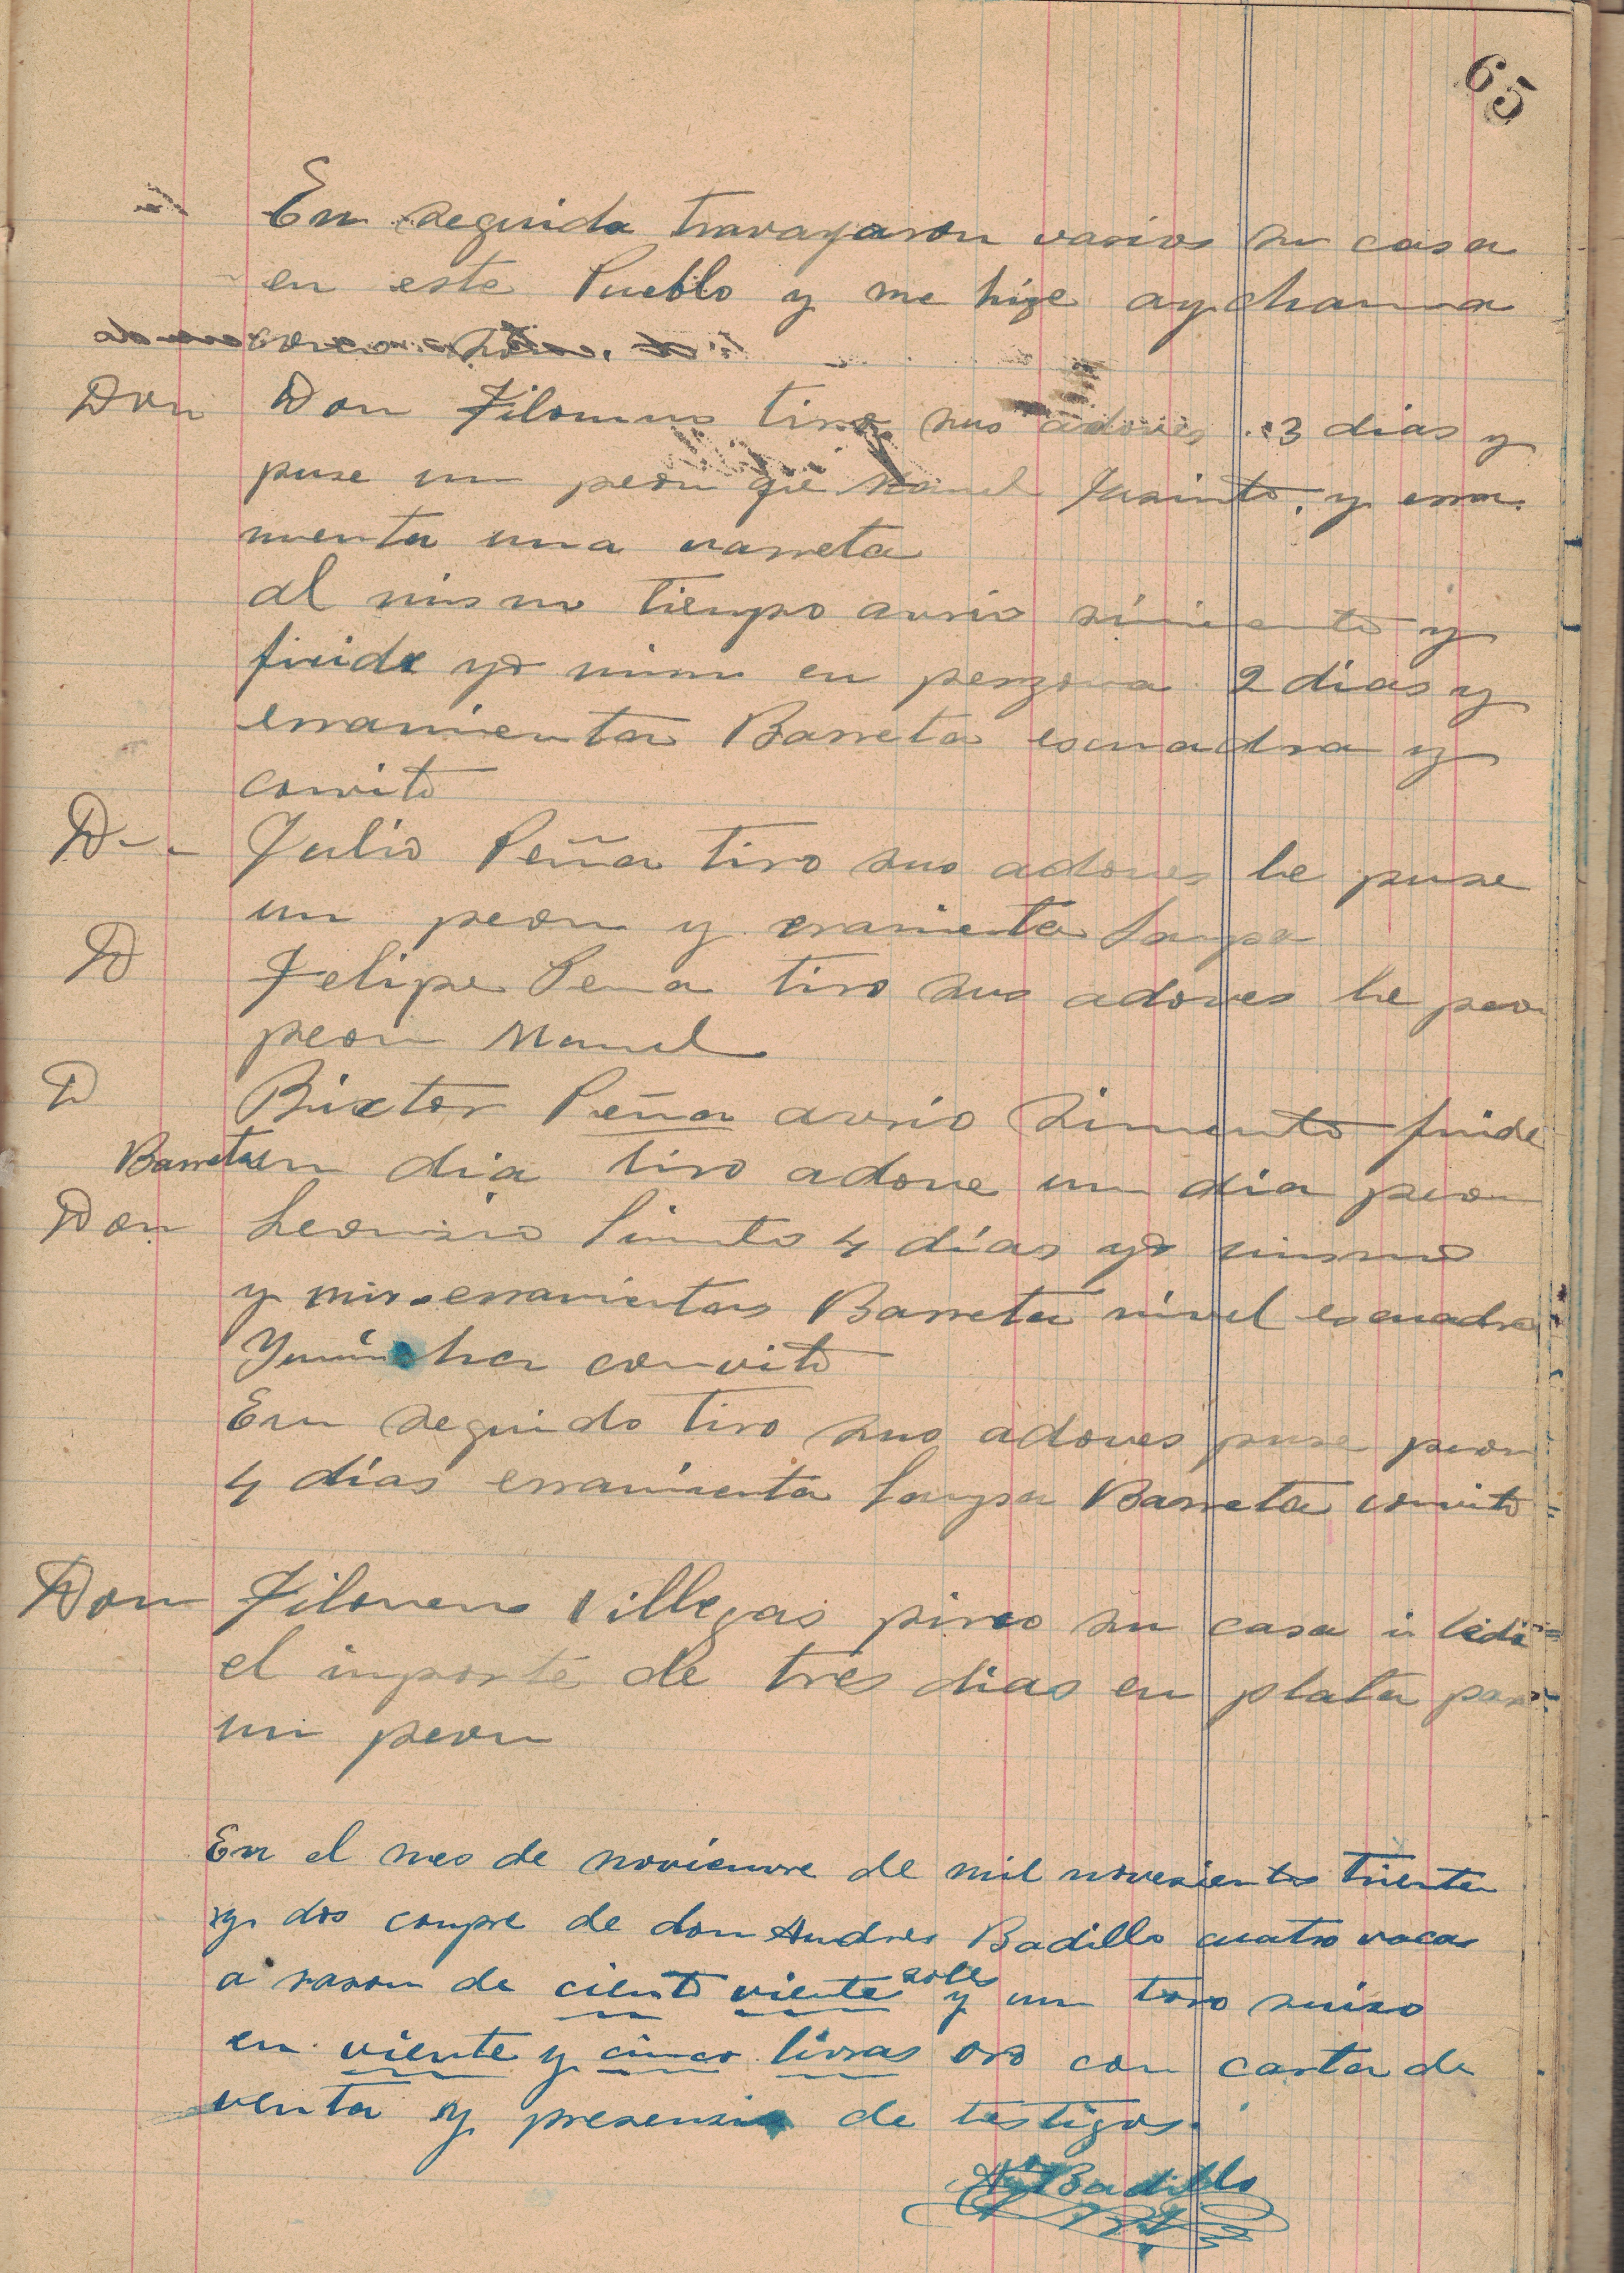 65
En seguida travajaron varios su casa
en este Pueblo y me hize aychama
Don Don Filomeno tiro sus adoves 3 dias y
puse un peon que Manuel Jasinto, y erra
mienta una varreta
al mismo tiempo avrio simiento y
fuide yo mimo en perzona 2 dias y
erramienta Barreta escuadra y
convito
D-- Julio Peña tiro sus adoves le puse
un peon y eramienta lampa
D Felipe Pena tiro sus adoves le peon
peon Manuel
D Bixtor Peña avrio Simiento fuide
Barreta un dia tiro adove un dia peon
Don Leonsio Pinto 4 días yo mismo
y mis erramientas Barreta nivel escuadra
convito
En seguido tiro sus adoves puse peon
4 dias erramienta lampa Barreta convito
Don Filomeno Villegas pirco su casa i ledi
el importe de tres dias en plata para
un peon
En el mes de noviemvre de mil novesientos trienta
y dos compre de don Andres Badillo cuatro vacas
a rason de ciento viente soles y un toro suizo
en viente y cinco livras oro con carta de
venta y presensia de testigos.
Badillo